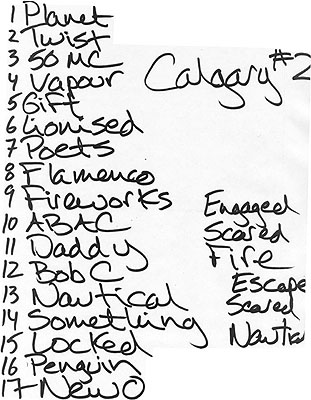 1 Planet
2 Twist
3 50 MC
4 Vapour
5 Gift
6 Lionised
7 Poets
8 Flamenco
9 Fireworks
10 ABAC
11 Daddy
12 Bob C
13 Nautical
14 Something
15 Locked
16 Penguin
17 New O
Calgary #2
Engaged
Scared
Fire
Escape
Scared
Nautia